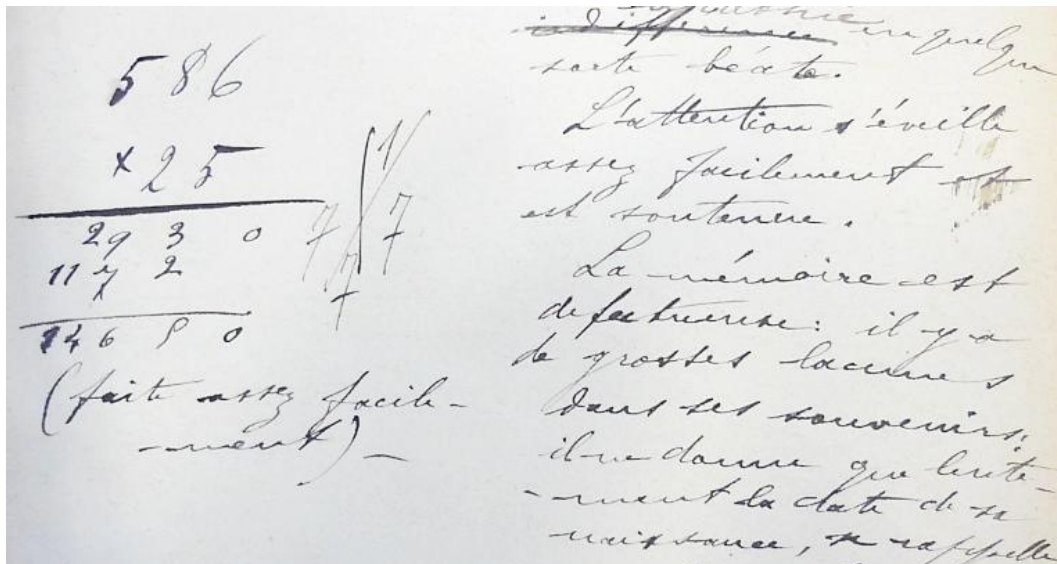 586
x 25
2930
1172
14650
1
7 7
7
(faite assez facile-
-ment) -
indifférence en quelque
sorte béate.
L'attention s'éveille
assez facilement et
est soutenue.
La mémoire est
defectueuse: il y a
de grosses lacunes
dans ses souvenirs.
il ne donne que lente-
-ment la date de sa
naissance, se rappelle